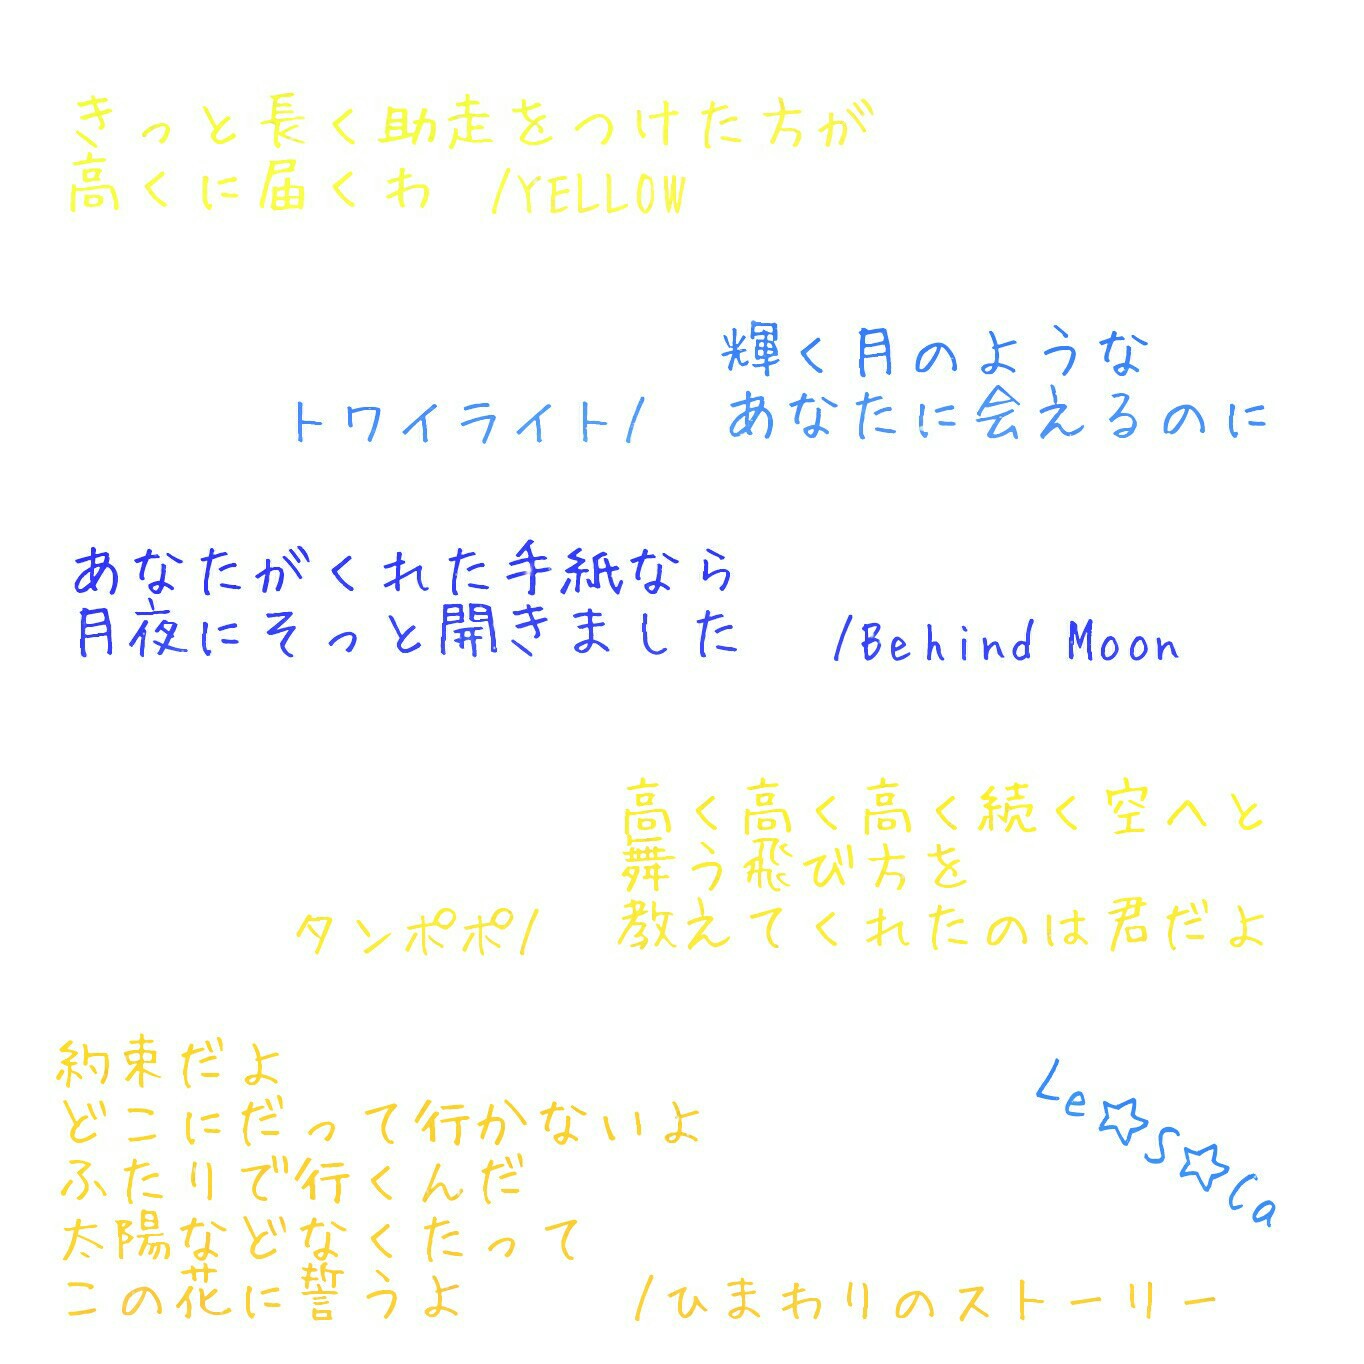 きっと長く助走をつけた方が
高くに届くわ /YELLOW
輝く月のような
トワイライト/ あなたに会えるのに
あなたがくれた手紙なら
月夜にそっと開きました /Behind Moon
高く高く高く続く空へと
舞う飛び方を
タンポポ/ 教えてくれたのは君だよ
約束だよ
どこにだって行かないよ
ふたりで行くんだ
太陽などなくたって
この花に誓うよ /ひまわりのストーリー
Le☆S☆Ca